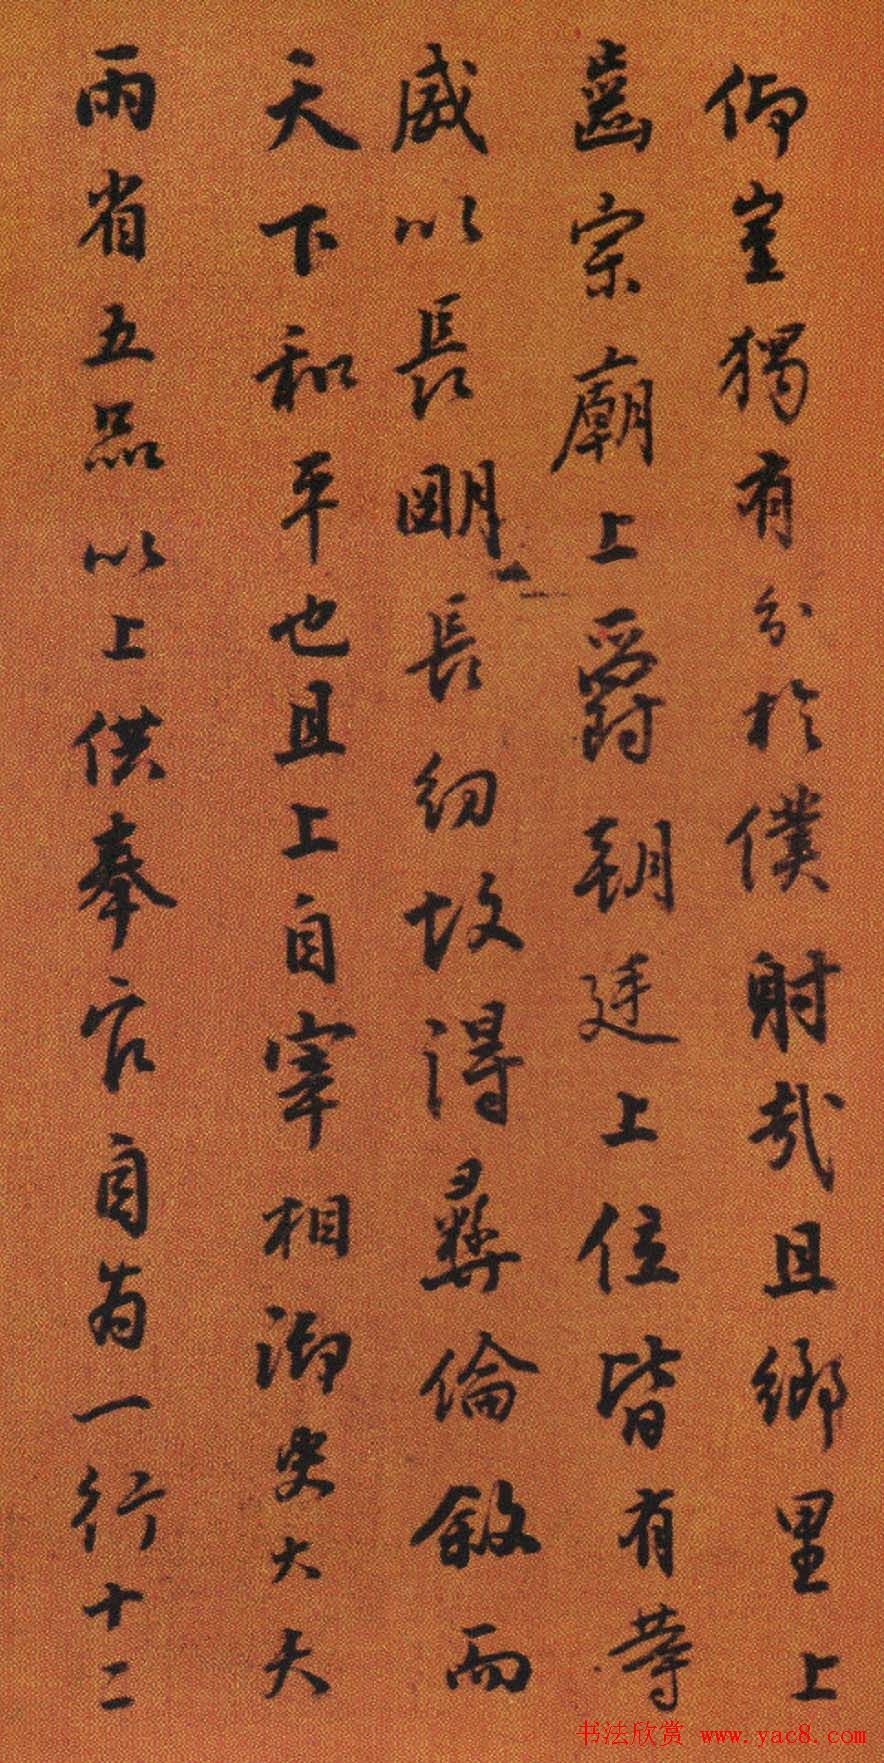 仰豈獨有分於僕射哉且鄉里上
齒宗廟上爵朝廷上位皆有等
威以長明長幼故得彝倫敘而
天下和平也且上自宰相御史大夫
兩省五品以上供奉官自為一行十二
书法欣赏 www.yac8.com